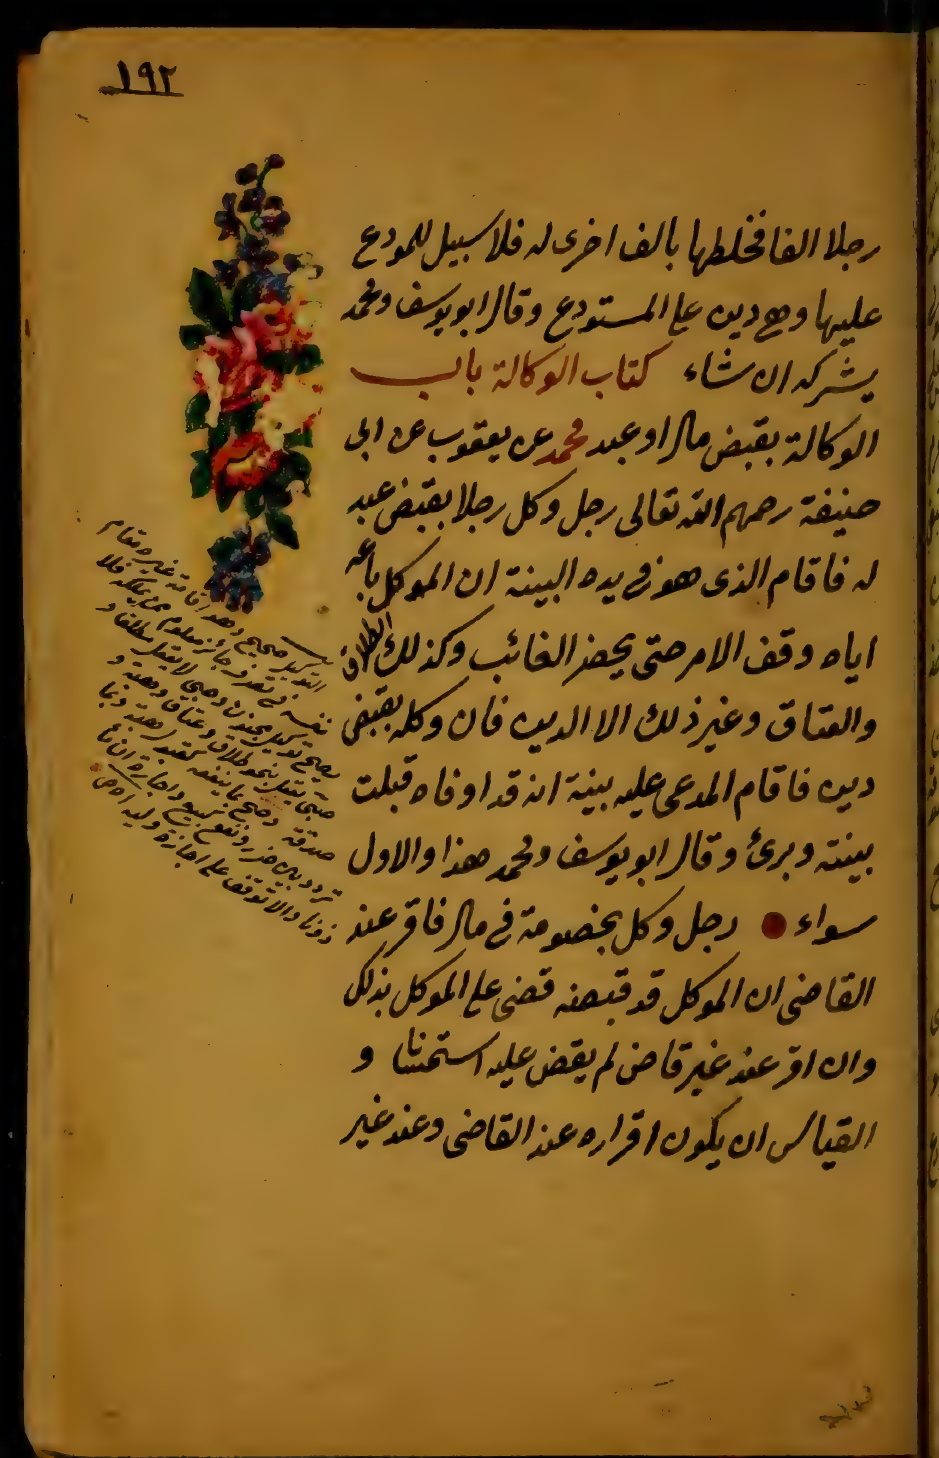 ١٩٢
رجلا الفا فخلطها بالف اخرى له فلا سبيل للمودع
عليها وهى دين على المستودع وقال ابو يوسف ومحمد
يشركه ان شاء كتاب الوكالة باب
الوكالة بقبض مال او عبد محمد عن يعقوب عن ابى
حنيفة رحمهم الله تعالى رجل وكل رجلا بقبض عبد
له فاقام الذى هو فى يده البينة ان الموكل باعه
اياه وقف الامر حتى يحضر الغائب وكذلك الطلاق
والعتاق وغير ذلك الا الدين فان وكله بقبض
دين فاقام المدعى عليه بينة انه قد اوفاه قبلت
بينته وبرئ وقال ابو يوسف ومحمد هذا والاول
سواء رجل وكل بخصومة فى مال فاقر عند
القاضى ان الموكل قد قبضه قضى على الموكل بذلك
وان اقر عند غير قاض لم يقض عليه استحسانا و
القياس ان يكون اقراره عند القاضى وعند غير
التوكيل صحيح وهو اقامة غيره مقام
نفسه فى تصرف جائز معلوم ممن يملكه فلا
يصح توكيل مجنون وصبى لا يعقل مطلقا و
صبى يعقل بنحو طلاق وعتاق وهبة و
صدقة وصح بما ينفعه كقبول هبة وبما
تردد بين ضرر ونفع كبيع واجارة ان مأ
ذونا والا توقف على اجازة وليه